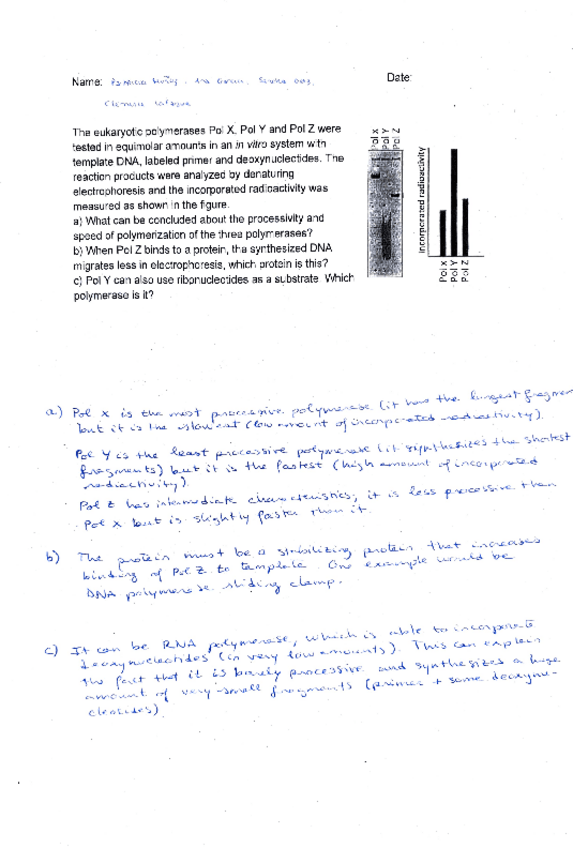 Name:
Date:
The eukaryotic polymerases Pol X, Pol Y and Pol Z were
tested in equimolar amounts in an in vitro system with
template DNA, labeled primer and deoxynucleotides. The
reaction products were analyzed by denaturing
electrophoresis and the incorporated radioactivity was
measured as shown in the figure.
a) What can be concluded about the processivity and
speed of polymerization of the three polymerases?
b) When Pol Z binds to a protein, the synthesized DNA
migrates less in electrophoresis, which protein is this?
c) Pol Y can also use ribonucleotides as a substrate. Which
polymerase is it?
Pol X
Pol Y
Pol Z
incorporated radioactivity
Pol X
Pol Y
Pol Z
a) Pol X is the most processive polymerase (it has the longest fragmen
but it is the slowest (low amount of incorporated radioactivity).
Pol Y is the least processive polymerase (it synthesizes the shortest
fragments) but it is the fastest (high amount of incorporated
radiactivity).
Pol Z has intermediate characteristics, it is less processive than
Pol X but is slightly faster than it.
b) The protein must be a stabilizing protein that increases
binding of Pol Z to template. One example would be
DNA polymerase sliding clamp.
c) It can be RNA polymerase, which is able to incorporate
deoxynucleotides (in very low amounts). This can explain
the fact that it is barely processive and synthesizes a huge
amount of very small fragments (primer + some deoxynu-
cleotides)